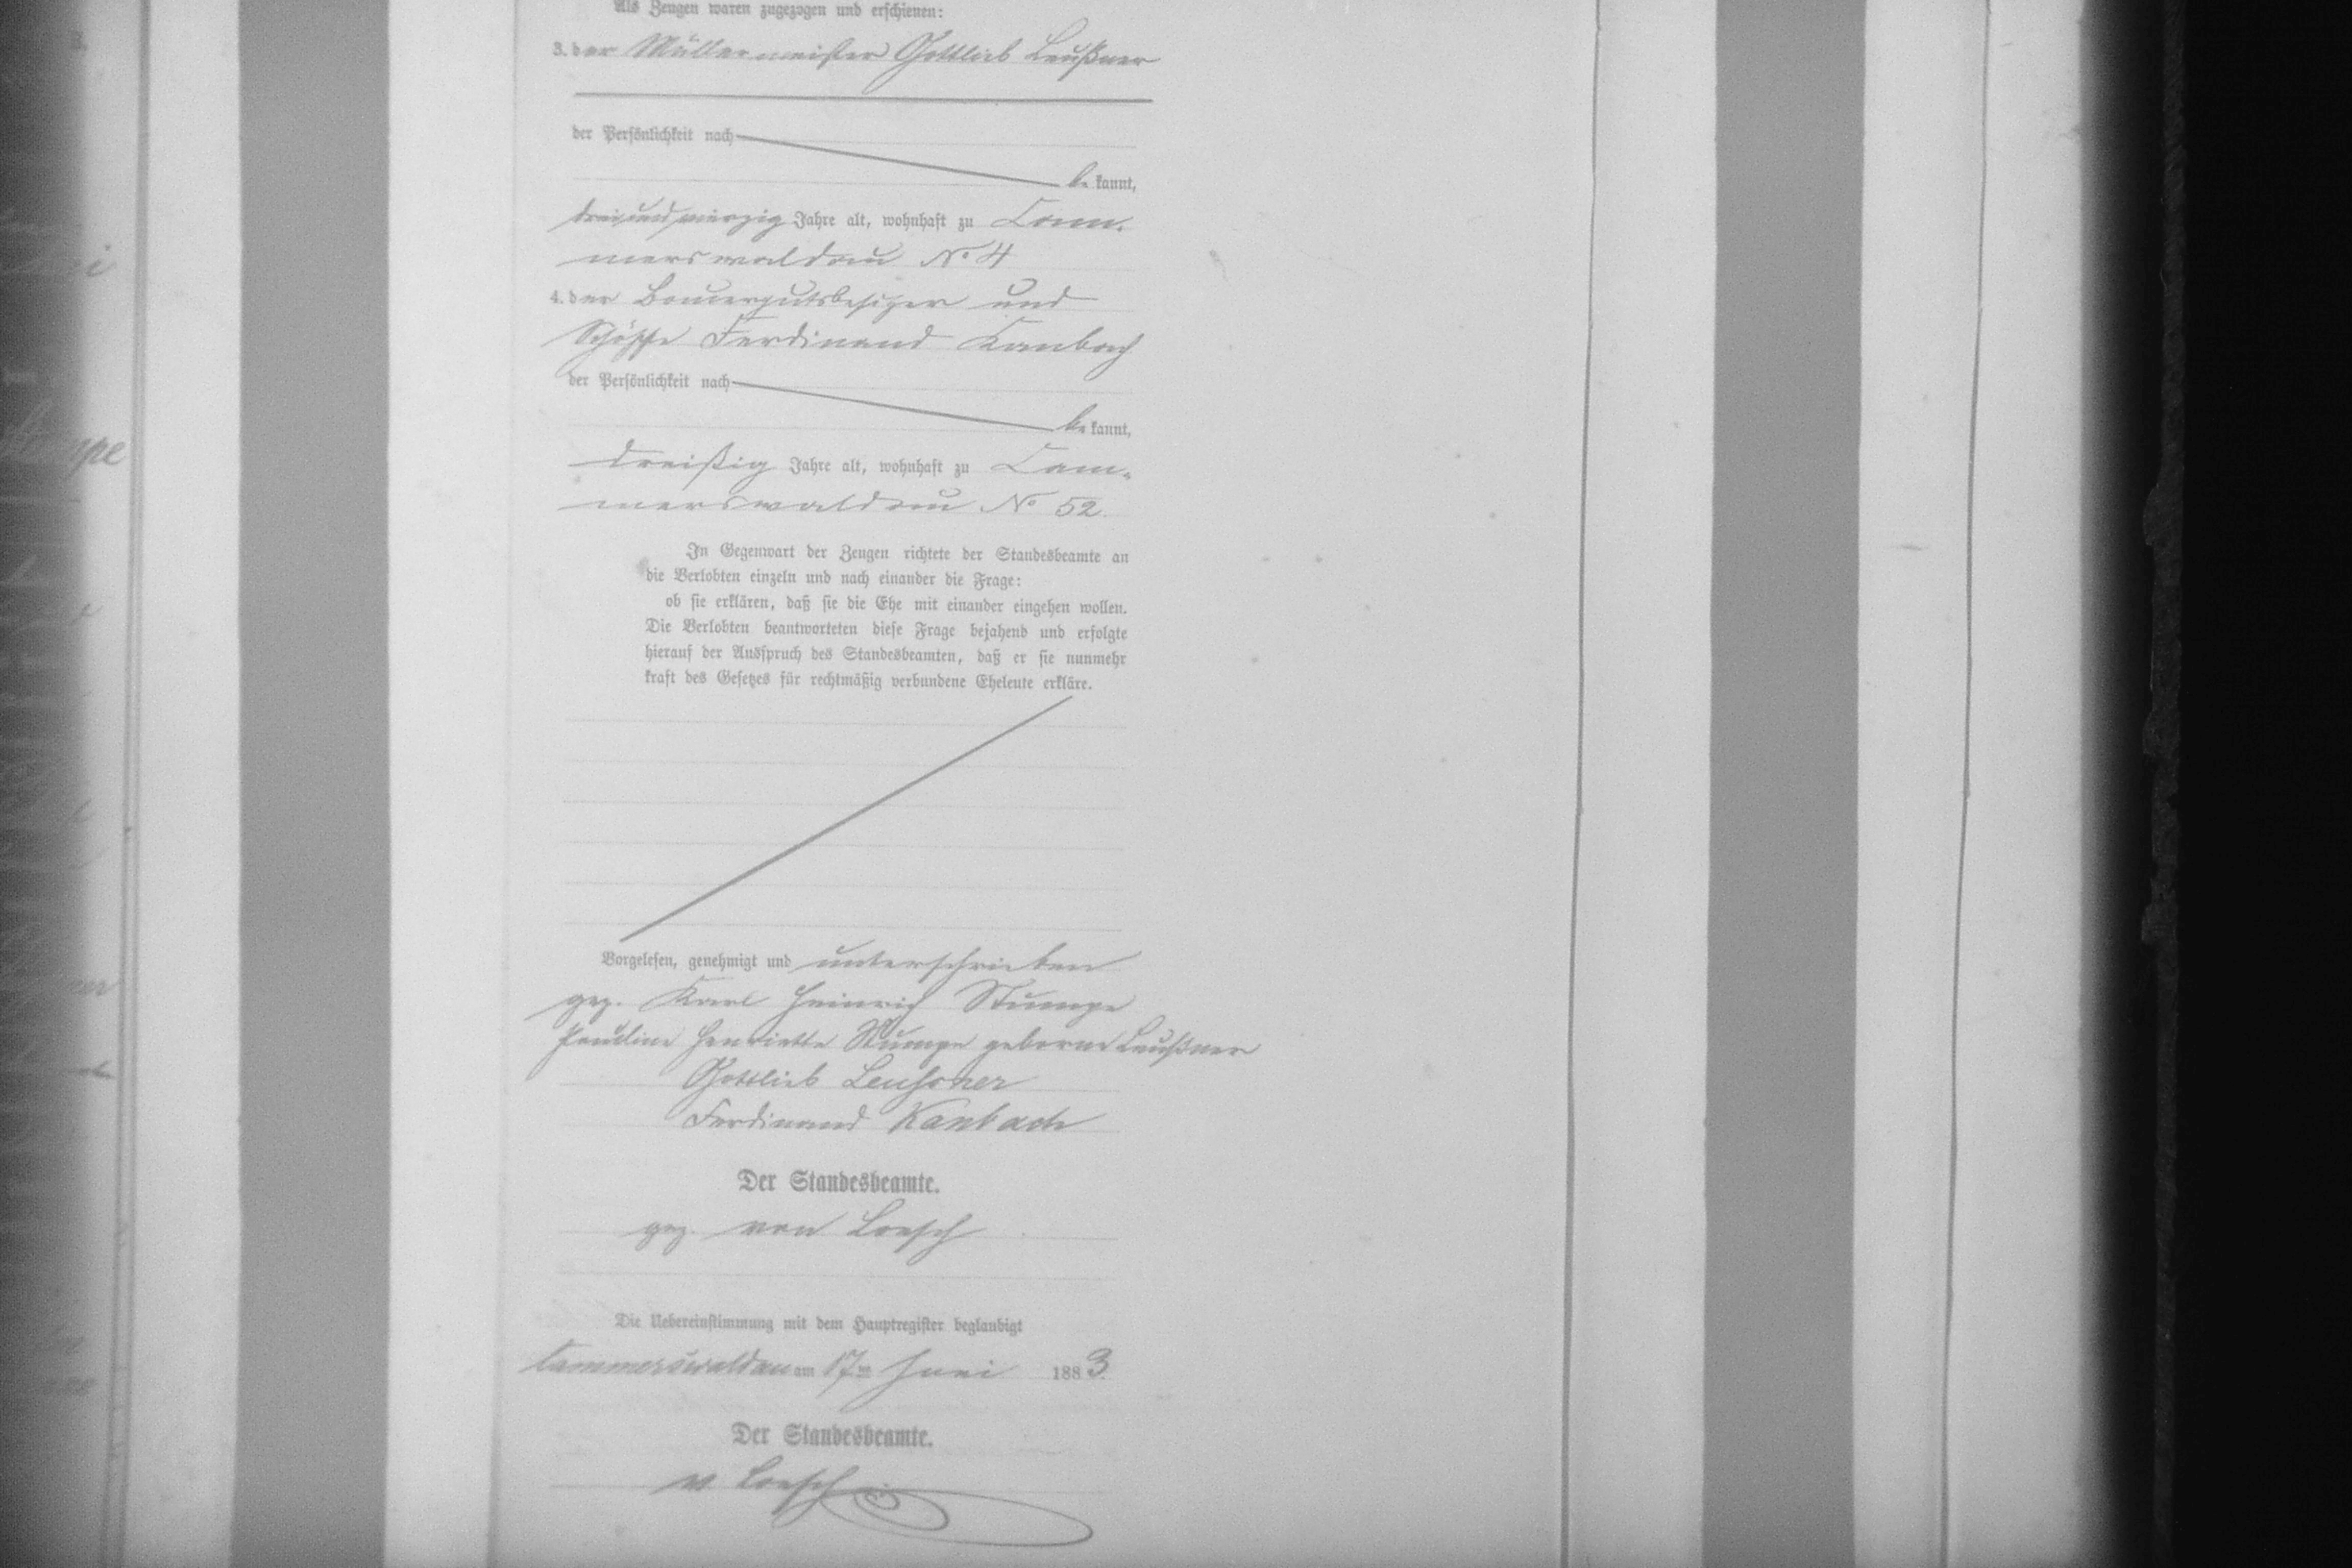 Als Zeugen waren zugezogen und erschienen:
3. der Müllermeister Gottlieb Leußner
der Persönlichkeit nach
be kannt,
dreiundvierzig Jahre alt, wohnhaft zu Cam-
merswaldau No 4
4. der Bauergutsbesitzer und
Schöffe Ferdinand Kanbach
der Persönlichkeit nach
be kannt,
dreißig Jahre alt, wohnhaft zu Cam-
merswaldau No 52.
In Gegenwart der Zeugen richtete der Standesbeamte an
die Verlobten einzeln und nach einander die Frage:
ob sie erklären, daß sie die Ehe mit einander eingehen wollen.
Die Verlobten beantworteten diese Frage bejahend und erfolgte
hierauf der Ausspruch des Standesbeamten, daß er sie nunmehr
kraft des Gesetzes für rechtmäßig verbundene Eheleute erkläre.
Vorgelesen, genehmigt und unterschrieben
gez. Karl Heinrich Stumpe
Pauline Henriette Stumpe geborne Leußner
Gottlieb Leussner
Ferdinand Kanbach
Der Standesbeamte.
gez. von Loesch
Die Uebereinstimmung mit dem Hauptregister beglaubigt
Cammerswaldau am 17ten Juni 1883.
Der Standesbeamte.
v. Loesch